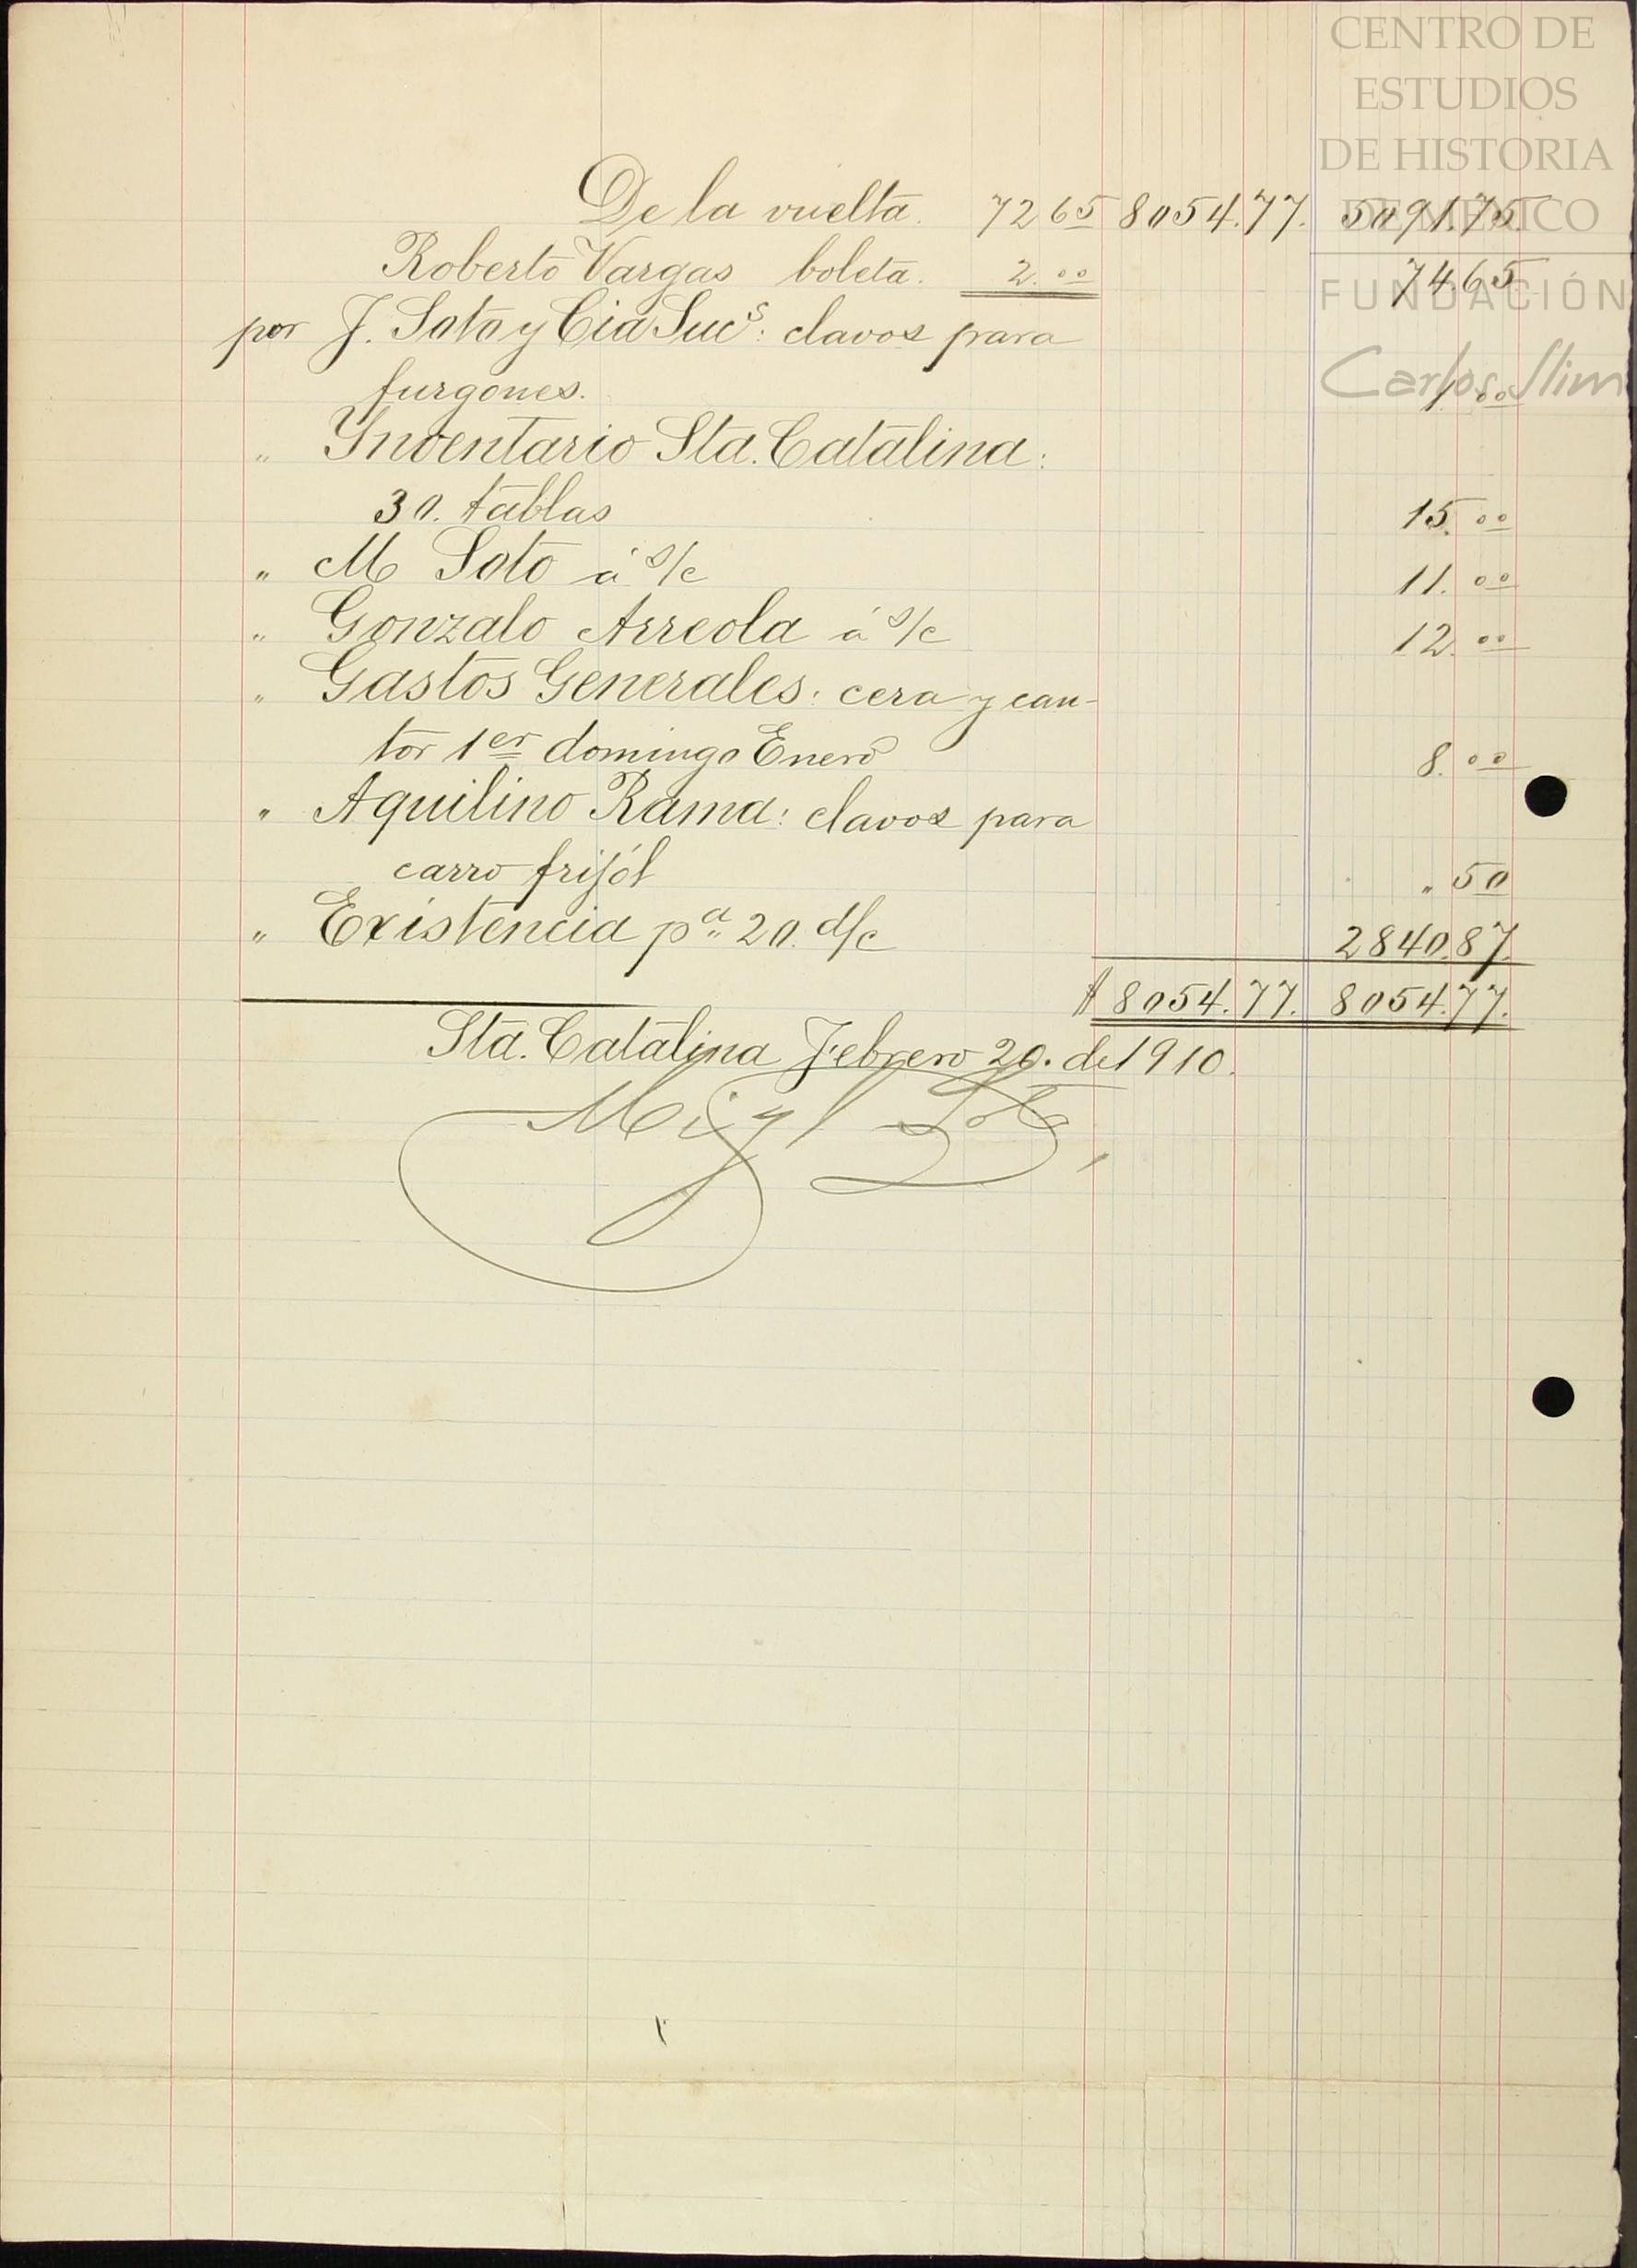 CENTRO DE
ESTUDIOS
DE HISTORIA
DE MÉXICO
FUNDACIÓN
Carlos Slim
De la vuelta. 7265 8054.77. 5091.75.
Roberto Vargas boleta. 2.00 74.65
por J. Soto y Cia Sucs: clavos para
furgones. 1.00
" Ynventario Sta. Catalina:
30. tablas 15.00
" M Soto á s/c 11.00
" Gonzalo Arreola á s/c 12.00
" Gastos Generales: cera y can-
tor 1er domingo Enero 8.00
" Aquilino Rama: clavos para
carro frijól " 50
" Existencia pa 20. d/c 2840.87.
$ 8054.77. 8054.77.
Sta. Catalina Febrero 20. de 1910.
Migl Soto